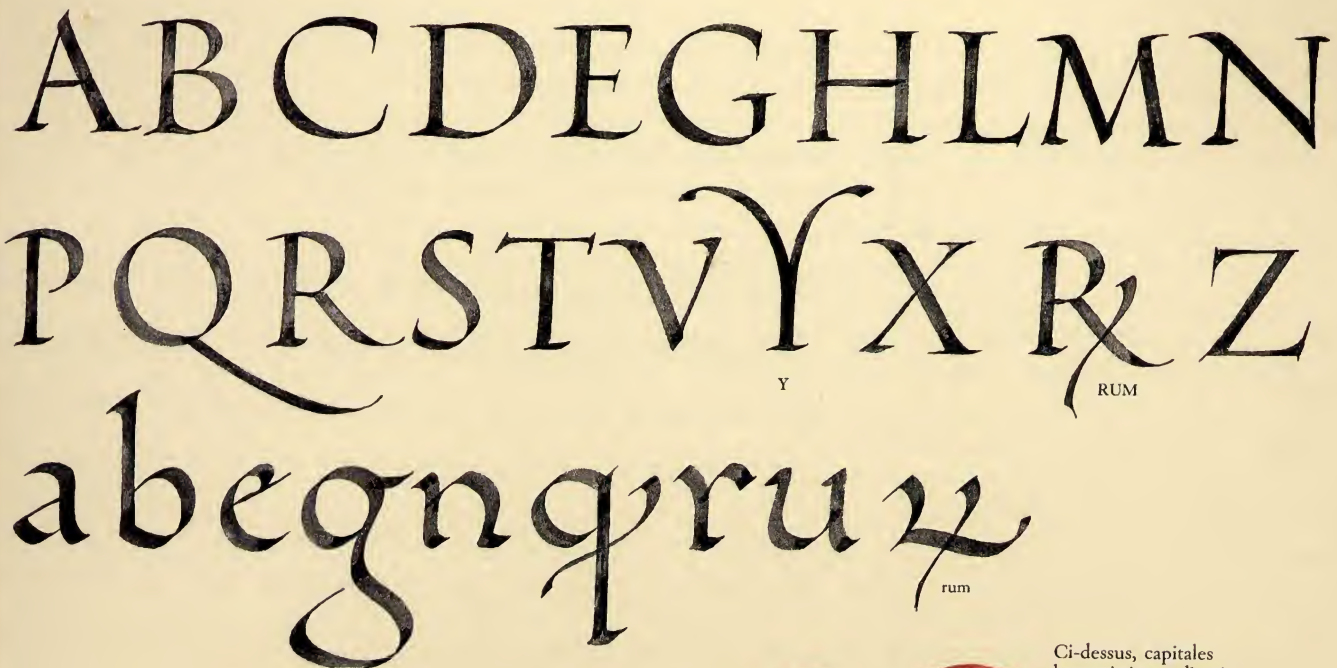 A B C D E G H L M N
P Q R S T V Y X Ꝝ Z
Y RUM
a b e g n q r u ꝝ
rum
Ci-dessus, capitales